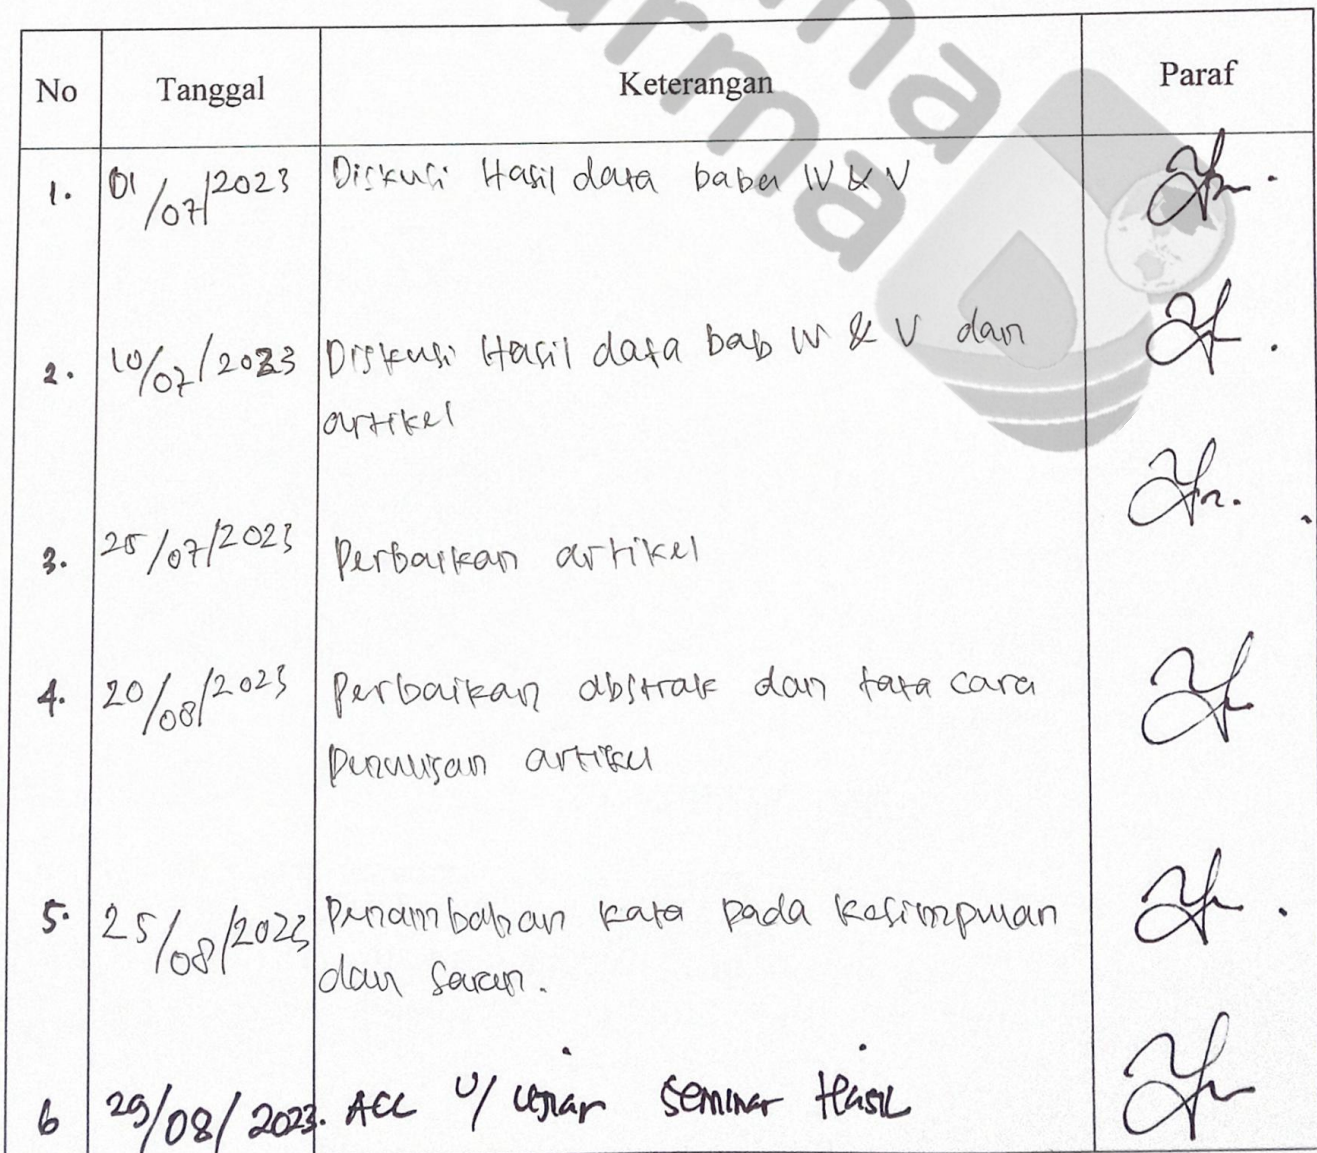 No Tanggal Keterangan Paraf
1. 01/07/2023 Diskusi Hasil data baba IV & V
2. 10/07/2023 Diskusi Hasil data bab IV & V dan
artikel
3. 25/07/2023 Perbaikan artikel
4. 20/08/2023 Perbaikan abstrak dan tata cara
Penulisan artikel
5. 25/08/2023 Penambahan kata pada kesimpulan
dan saran.
6 29/08/2023. ACC U/ Ujian Seminar Hasil